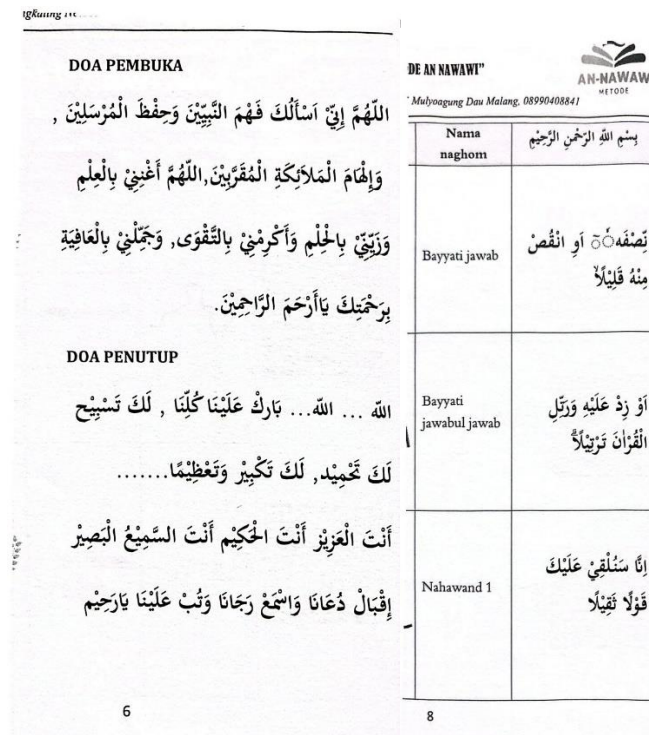 DOA PEMBUKA
اللّهُمَّ إِنِّيْ اَسْأَلُكَ فَهْمَ النَّبِيِّيْنَ وَحِفْظَ الْمُرْسَلِيْنَ ,
وَإِلْهَامَ الْمَلاَئِكَةِ الْمُقَرَّبِيْنَ,اللّهُمَّ أَغْنِنِيْ بِالْعِلْمِ
وَزَيِّنِّيْ بِالْحِلْمِ وَأَكْرِمْنِيْ بِالتَّقْوَى, وَجَمِّلْنِيْ بِالْعَافِيَةِ
بِرَحْمَتِكَ يَاأَرْحَمَ الرَّاحِمِيْنَ.
DOA PENUTUP
اللّه ... اللّه... بَارِكْ عَلَيْنَا كُلِّنَا , لَكَ تَسْبِيْح
لَكَ تَحْمِيْد, لَكَ تَكْبِيْر وَتَعْظِيْمًا.......
أَنْتَ الْعَزِيْز أَنْتَ الْحَكِيْم أَنْتَ السَّمِيْعُ الْبَصِيْر
إِقْبَالْ دُعَانَا وَاسْمَعْ رَجَانَا وَتُبْ عَلَيْنَا يَارَحِيْم
6
DE AN NAWAWI"
AN-NAWAW
METODE
Mulyoagung Dau Malang, 08990408841
Nama
naghom
بِسْمِ اللّٰهِ الرَّحْمٰنِ الرَّحِيْمِ
Bayyati jawab
نِّصْفَهٗٓ اَوِ انْقُصْ
مِنْهُ قَلِيْلًاۙ
Bayyati
jawabul jawab
اَوْ زِدْ عَلَيْهِ وَرَتِّلِ
الْقُرْاٰنَ تَرْتِيْلًاۗ
Nahawand 1
اِنَّا سَنُلْقِيْ عَلَيْكَ
قَوْلًا ثَقِيْلًا
8